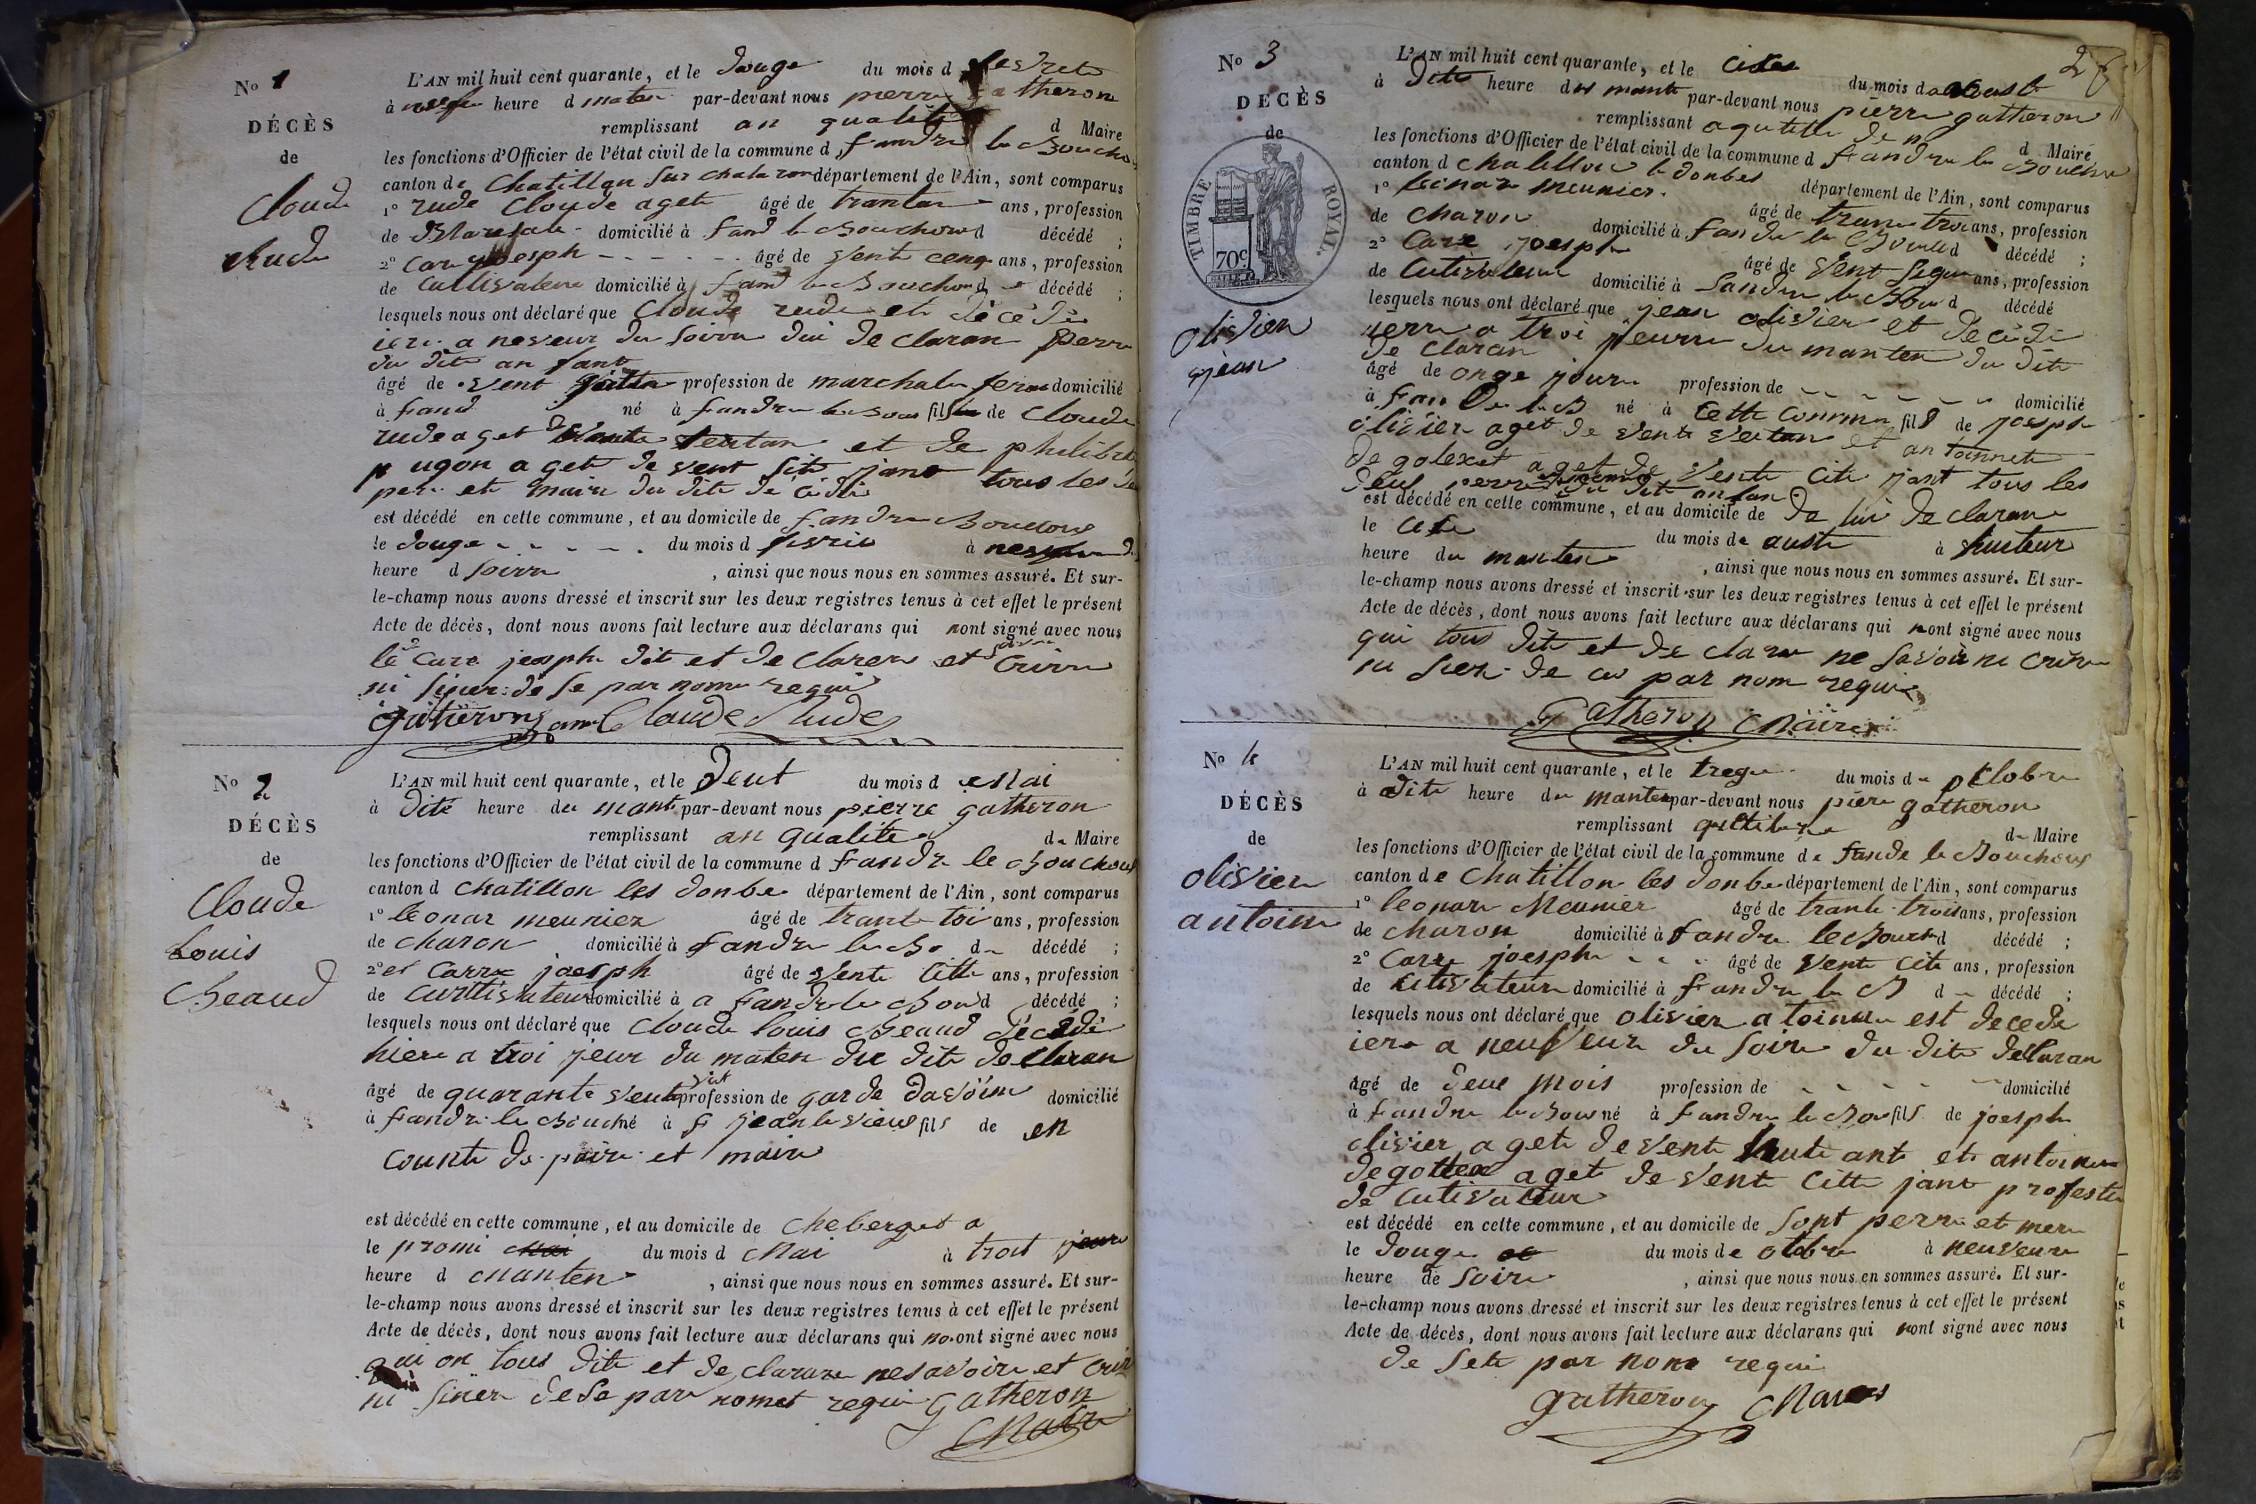 No 1
DÉCÈS
de
Cloude
Rude
L'AN mil huit cent quarante, et le douge du mois d
à heure d maten par-devant nous pierre gatheron
remplissant an qualité d Maire
les fonctions d'Officier de l'état civil de la commune d fandre le Boucho
canton de Chatillon sur chalaron département de l'Ain, sont comparus
1° rude Cloude aget âgé de trantan ans, profession
de domicilié à fand le Bouchoud décédé ;
2° care joesph âgé de vent cenq ans, profession
de cultivateur domicilié à fand le Bouchoud décédé ;
lesquels nous ont déclaré que Cloude rude et décédé
iere a neveur du soire dui de claran perre
du dite an fant
âgé de vent profession de marchal feran domicilié
à fand né à fandre le Bou fils de Cloude
rude aget et de philiber
pugon a gete de vent site jant tous les de
pere et maire du dite décédé
est décédé en cette commune, et au domicile de fandre Bouchou
le douge du mois d fevrie à
heure d soire , ainsi que nous nous en sommes assuré. Et sur-
le-champ nous avons dressé et inscrit sur les deux registres tenus à cet effet le présent
Acte de décès, dont nous avons fait lecture aux déclarans qui nont signé avec nous
le Care joesph dit et de claren et crire
ni siner de se par nome requi
gatheron Claude Rude
No 2
DÉCÈS
de
Cloude
Louis
Beaud
L'AN mil huit cent quarante, et le deut du mois d Mai
à dite heure du mant par-devant nous pierre gatheron
remplissant an qualite de Maire
les fonctions d'Officier de l'état civil de la commune d fandr le Bouchoud
canton d chatillon les donbe département de l'Ain, sont comparus
1° leonar meunier âgé de trante troi ans, profession
de charon domicilié à fandre le Bo de décédé ;
2° et Carre joesph âgé de vente citte ans, profession
de curttivateur domicilié à a fandr le Boud décédé ;
lesquels nous ont déclaré que Cloude louis Beaud décédé
hiere a troi jeur du maten du dite de claran
âgé de quarante vent profession de garde davoine domicilié
à fandre le Bouch né à f jean le vieus fils de en
counte de paire et maire
est décédé en cette commune, et au domicile de cheberget a
le promi du mois d Mai à troit jeure
heure d Manten , ainsi que nous nous en sommes assuré. Et sur-
le-champ nous avons dressé et inscrit sur les deux registres tenus à cet effet le présent
Acte de décès, dont nous avons fait lecture aux déclarans qui no ont signé avec nous
qui on tous dite et de clarare ne savoire et crir
ni siner dese par nomet requi gatheron
Maire
No 3
DECÈS
de
TIMBRE ROYAL.
70c
olivier
jean
L'AN mil huit cent quarante, et le du mois d aoust
à dite heure du mante par-devant nous pierre gatheron
remplissant de Maire
les fonctions d'Officier de l'état civil de la commune d fandre le Bouchou
canton d chatillon le donbes département de l'Ain, sont comparus
1° leonar meunier âgé de trante troi ans, profession
de charon domicilié à fandre le Boud décédé ;
2° Care joesph âgé de vent ans, profession
de cutivateur domicilié à fandre le Boud décédé
lesquels nous ont déclaré que jean olivier et décédé
ierre a troi heurre du manten du dite
de claran
âgé de onge joure profession de domicilié
à fan d le B né à cette commun fils de joesph
olivier aget de vente et antoinnete
de golexet aget de vente cite jant tous les
deus perre
est décédé en cette commune, et au domicile de de lui de claran
le du mois de auste à
heure du manten , ainsi que nous nous en sommes assuré. Et sur-
le-champ nous avons dressé et inscrit sur les deux registres tenus à cet effet le présent
Acte de décès, dont nous avons fait lecture aux déclarans qui nont signé avec nous
qui tous dite et de claraue ne savoir ni crire
ni sien de ce par nom requi
Gatheron Maire
No 4
DÉCÈS
de
olivier
antoine
L'AN mil huit cent quarante, et le trege du mois de octobre
à dite heure du manten par-devant nous piere gatheron
remplissant de Maire
les fonctions d'Officier de l'état civil de la commune de fande le Bouchous
canton de Chatillon les donbe département de l'Ain, sont comparus
1° leonare Meunier âgé de trante trois ans, profession
de charon domicilié à fandre le Bourd décédé ;
2° Carre joesph âgé de vente cite ans, profession
de cutivateur domicilié à fandre le B d décédé ;
lesquels nous ont déclaré que olivier atoinne est decede
iere a neuf eure du soire du dite declaran
âgé de deue mois profession de domicilié
à fandre le Bou né à fandre le Bou fils de joesph
olivier a gete de vente huite ant et antoinen
de gotlex aget de vente citte jant profeste
de cutivateur
est décédé en cette commune, et au domicile de sont perre et mere
le douge du mois de otobre à neuveure
heure de soire , ainsi que nous nous en sommes assuré. Et sur-
le-champ nous avons dressé et inscrit sur les deux registres tenus à cet effet le présent
Acte de décès, dont nous avons fait lecture aux déclarans qui nont signé avec nous
de sete par nome requi
gatheron Maire